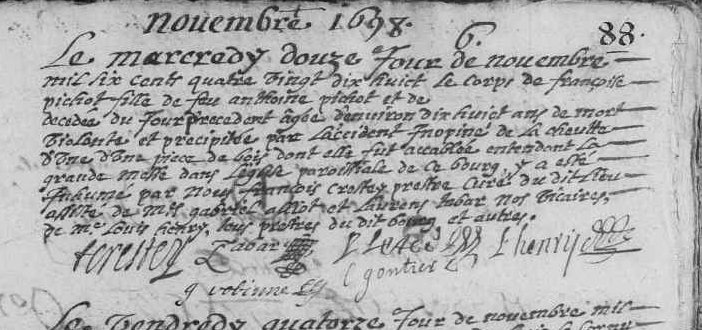 novembre 1698.
6. 88.
Le marcredy douze Jour de novembre
mil six cents quatre vingt dix huict le corps de françoise
pichot fille de feu anthoine pichot et de
decedee du Jour precedent agée denviron dix huict ans de mort
violente et precipitée par laccident Inopine de la cheutte
d'une piece de bois dont elle fut accablée entendant la
grande messe dans l'eglise paroissiale de ce bourg, y a esté
Inhumé par nous françois crestey prestre curé du dit lieu
assisté de mes gabriel alliot et laurens tabar nos vicaires,
de me Louis henry, tous prestres du dit bourg et autres.
L tabar L henry
gontier
Le vendredy quatorze Jour de novembre mil